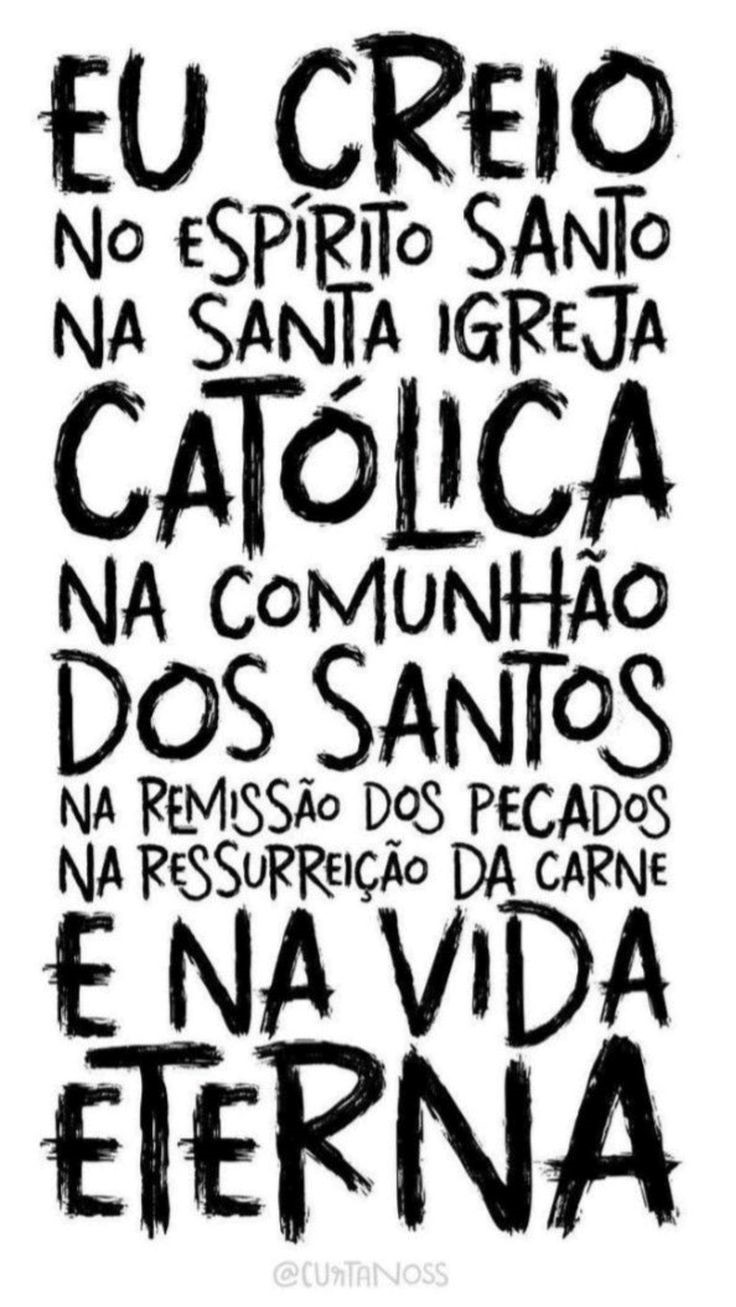 EU CREIO
NO ESPÍRITO SANTO
NA SANTA IGREJA
CATÓLICA
NA COMUNHÃO
DOS SANTOS
NA REMISSÃO DOS PECADOS
NA RESSURREIÇÃO DA CARNE
E NA VIDA
ETERNA
@CURTANOSS